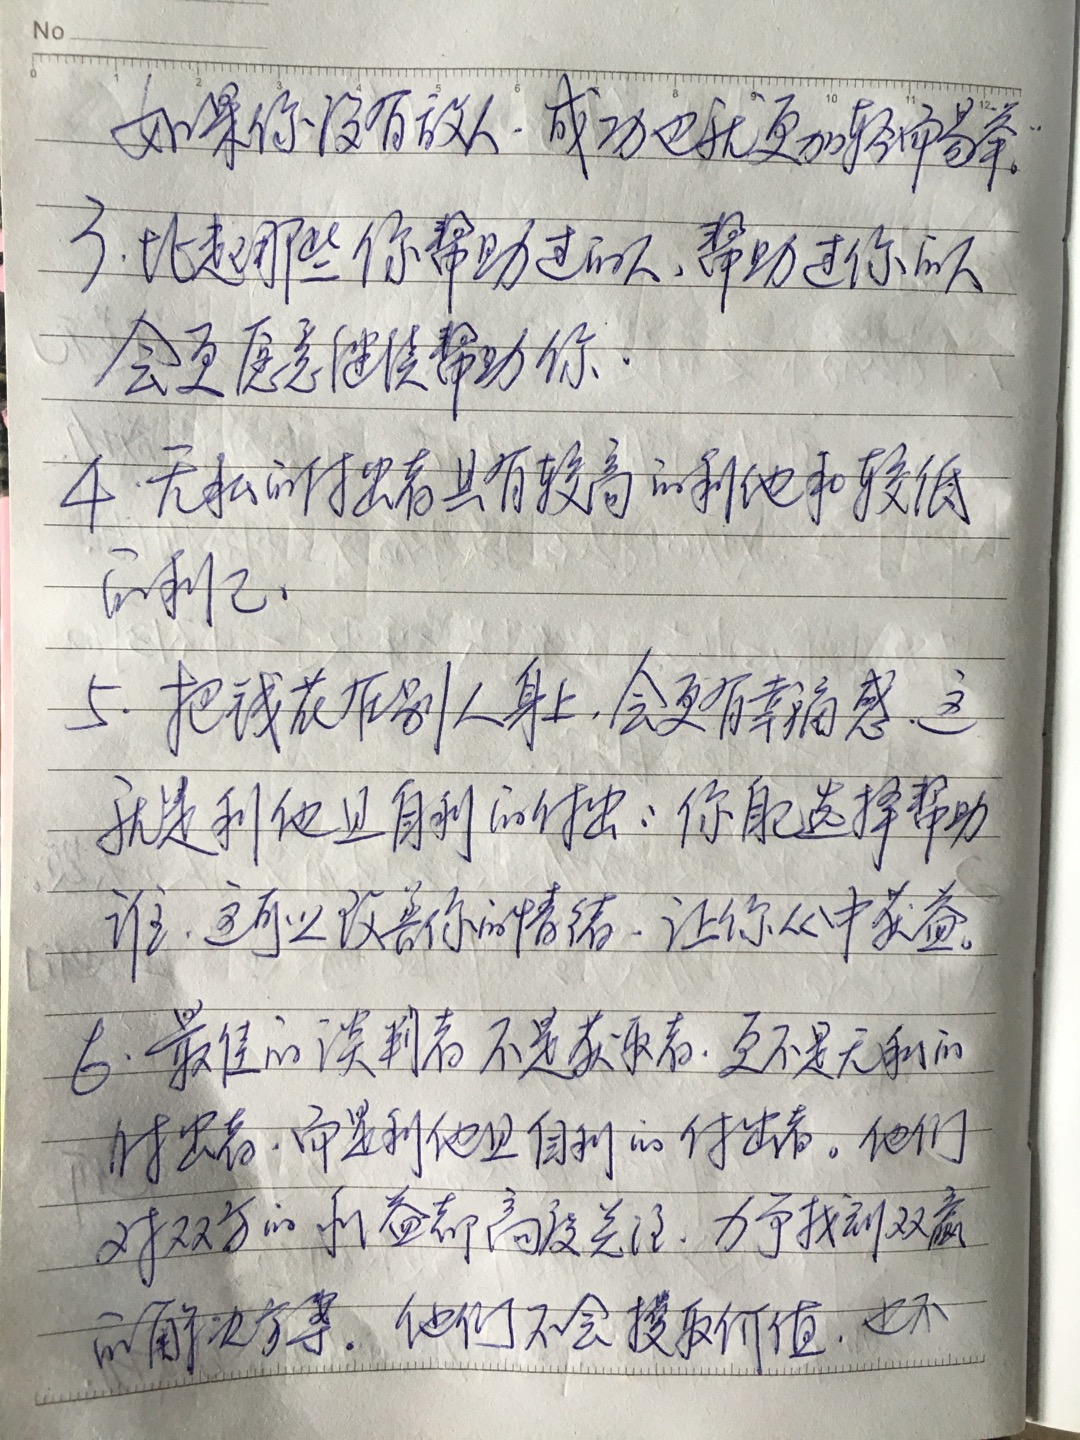 No
0 1 2 3 4 5 6 8 9 10 11 12
如果你没有敌人，成功也就更加轻而易举。”
3. 比起那些你帮助过的人，帮助过你的人
会更愿意继续帮助你.
4. 无私的付出者具有较高的利他和较低
的利己.
5. 把钱花在别人身上，会更有幸福感，这
就是利他且自利的付出：你自己选择帮助
谁，这可以改善你的情绪，让你从中获益。
6. 最佳的谈判者不是获取者，更不是无利的
付出者，而是利他且自利的付出者。他们
对双方的利益都高度关注，力争找到双赢
的解决方案。他们不会攫取价值，也不